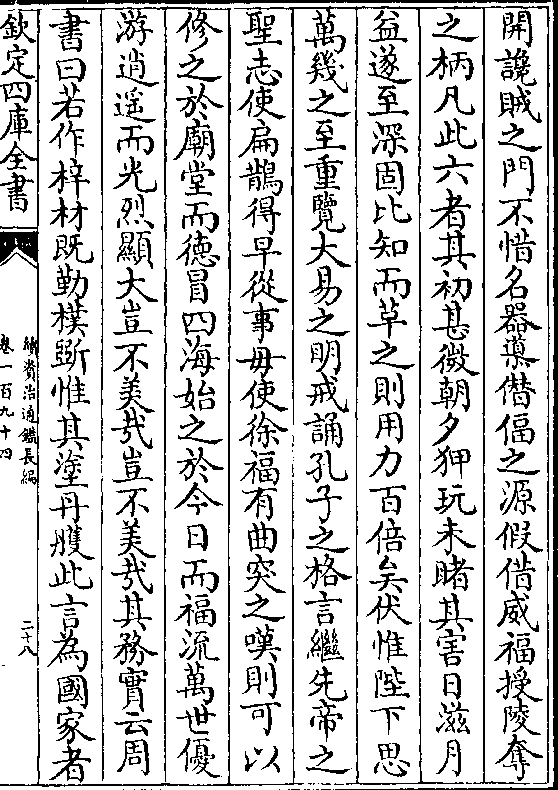 開讒賊之門不惜名器導僣偪之源假借威福授陵奪
之柄凡此六者其初甚微朝夕狎玩未睹其害日滋月
益遂至深固比知而革之則用力百倍矣伏惟陛下思
萬幾之至重覽大易之明戒誦孔子之格言繼先帝之
聖志使扁鵲得早從事毋使徐福有曲突之嘆則可以
修之於廟堂而德冒四海始之於今日而福流萬世優
游逍遥而光烈顯大豈不美哉豈不美哉其務實云周
書曰若作梓材既勤樸斵惟其塗丹雘此言為國家者
欽定四庫全書
續資治通鑑長編
卷一百九十四
二十八